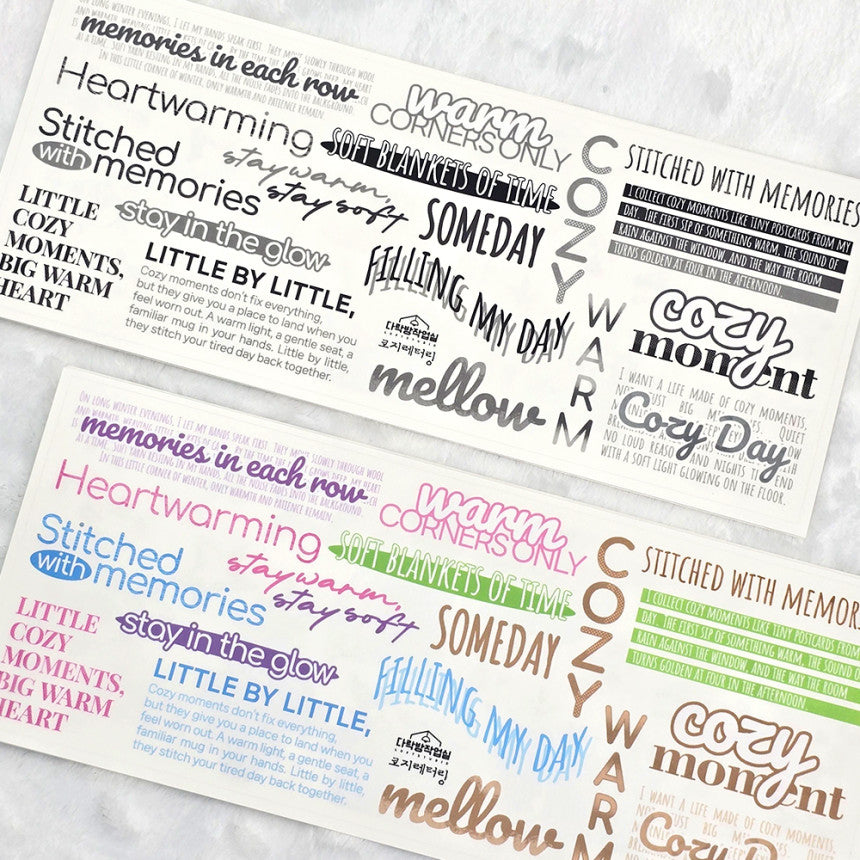 ON LONG WINTER EVENINGS, I LET MY HANDS SPEAK FIRST. THEY MOVE SLOWLY THROUGH WOOL
memories in each row
IN THIS LITTLE CORNER OF WINTER, ONLY WARMTH AND PATIENCE REMAIN.
Heartwarming
Stitched
with memories
LITTLE
COZY
MOMENTS,
BIG WARM
HEART
stay warm,
stay soft
stay in the glow
LITTLE BY LITTLE,
Cozy moments don't fix everything,
but they give you a place to land when you
feel worn out. A warm light, a gentle seat, a
familiar mug in your hands. Little by little,
they stitch your tired day back together.
warm
CORNERS ONLY
SOFT BLANKETS OF TIME
SOMEDAY
FILLING MY DAY
다락방작업실
코지레터링
mellow
COZY
WARM
STITCHED WITH MEMORIES
I COLLECT COZY MOMENTS LIKE TINY POSTCARDS FROM MY
DAY. THE FIRST SIP OF SOMETHING WARM, THE SOUND OF
RAIN AGAINST THE WINDOW, AND THE WAY THE ROOM
TURNS GOLDEN AT FOUR IN THE AFTERNOON.
cozy
moment
I WANT A LIFE MADE OF COZY MOMENTS,
Cozy Day
WITH A SOFT LIGHT GLOWING ON THE FLOOR.
ON LONG WINTER EVENINGS, I LET MY HANDS SPEAK FIRST. THEY MOVE SLOWLY THROUGH WOOL
memories in each row
IN THIS LITTLE CORNER OF WINTER, ONLY WARMTH AND PATIENCE REMAIN.
Heartwarming
Stitched
with memories
LITTLE
COZY
MOMENTS,
BIG WARM
HEART
stay warm,
stay soft
stay in the glow
LITTLE BY LITTLE,
Cozy moments don't fix everything,
but they give you a place to land when you
feel worn out. A warm light, a gentle seat, a
familiar mug in your hands. Little by little,
they stitch your tired day back together.
warm
CORNERS ONLY
SOFT BLANKETS OF TIME
SOMEDAY
FILLING MY DAY
다락방작업실
코지레터링
mellow
COZY
WARM
STITCHED WITH MEMOR
I COLLECT COZY MOMENTS LIKE TINY POSTCARDS FROM
DAY. THE FIRST SIP OF SOMETHING WARM, THE SOUND
RAIN AGAINST THE WINDOW, AND THE WAY THE ROOM
TURNS GOLDEN AT FOUR IN THE AFTERNOON.
cozy
moment
I WANT A LIFE MADE OF COZY MOMENTS,
Cozy Da